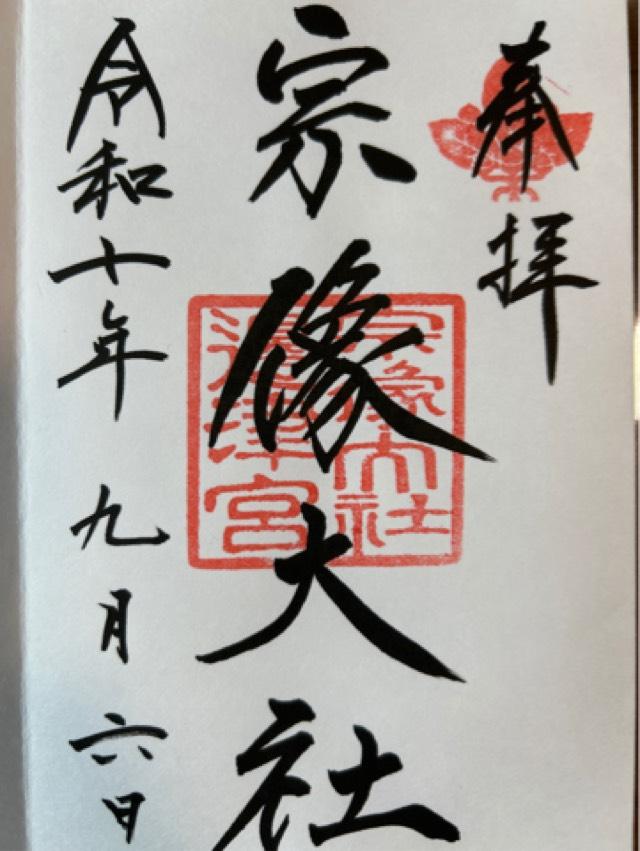 奉拝
宗像大社
宗像大社
邊津宮
令和十年九月六日